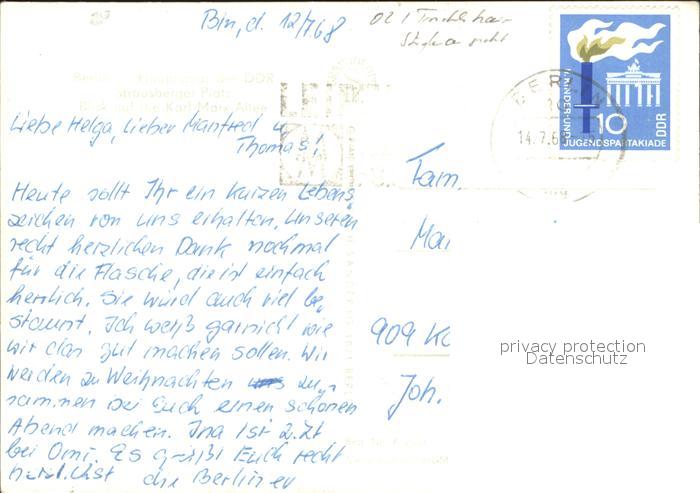 Bln, d. 12/7.68
Berlin, Hauptstadt der DDR
Strausberger Platz
Blick auf die Karl-Marx-Allee
Liebe Helga, lieber Manfred u.
Thomas!
Heute sollt Ihr ein kurzen Lebens
zeichen von uns erhalten. Unseren
recht herzlichen Dank nochmal
für die Flasche, die ist einfach
herrlich. Sie wird auch viel be
staunt. Ich weiß garnicht wie
wir das gut machen sollen. Wir
werden zu Weihnachten zu
sammen bei Euch einen schönen
Abend machen. Ina ist z.Zt
bei Omi. Es grüßt Euch recht
herzlichst die Berliner
BERLIN
14.7.68
II. KINDER-UND
JUGENDSPARTAKIADE
10
DDR
Fam.
Mai
909 K
Joh.
privacy protection
Datenschutz